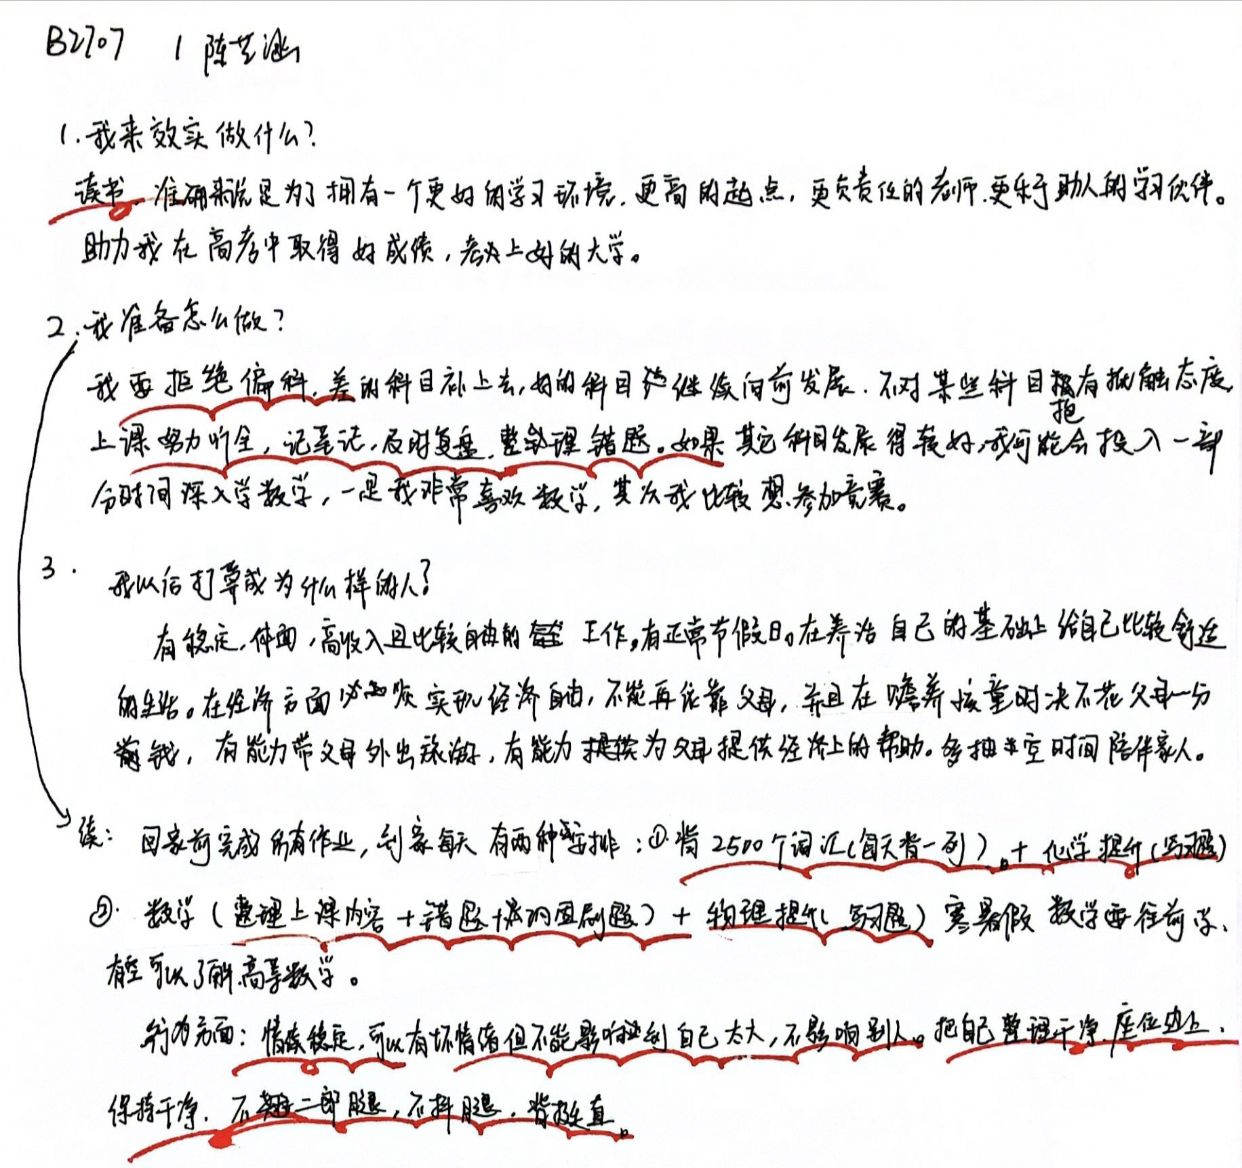 B2707 1 陈艺涵
1.我来效实做什么?
读书,准确来说是为了拥有一个更好的学习环境,更高的起点,更负责任的老师,更乐于助人的学习伙伴。
助力我在高考中取得好成绩,考上好的大学。
2.我准备怎么做?
我要拒绝偏科,差的科目补上去,好的科目继续向前发展,不对某些科目抱有抵触态度
上课努力听全,记笔记,及时复盘,整理错题。如果其它科目发展得较好,我可能会投入一部
分时间深入学数学,一是我非常喜欢数学,其次我比较想参加竞赛。
3. 我以后打算成为什么样的人?
有稳定,体面,高收入且比较自由的工作,有正常节假日。在养活自己的基础上给自己比较舒适
的生活。在经济方面必须实现经济自由,不能再依靠父母,并且在赡养孩童时决不花父母一分
钱,有能力带父母外出旅游,有能力为父母提供经济上的帮助。多抽空时间陪伴家人。
续:回家前完成所有作业,到家每天有两种安排:①背2500个词汇(每天背一列)+化学提升(写习题)
②.数学(整理上课内容+错题+巩固刷题)+物理提升(写习题)寒暑假数学要往前学,
有空可以了解高等数学。
行为方面:情绪稳定,可以有坏情绪但不能影响到自己太大,不影响别人。把自己整理干净,座位边上
保持干净,不翘二郎腿,不抖腿,背挺直。